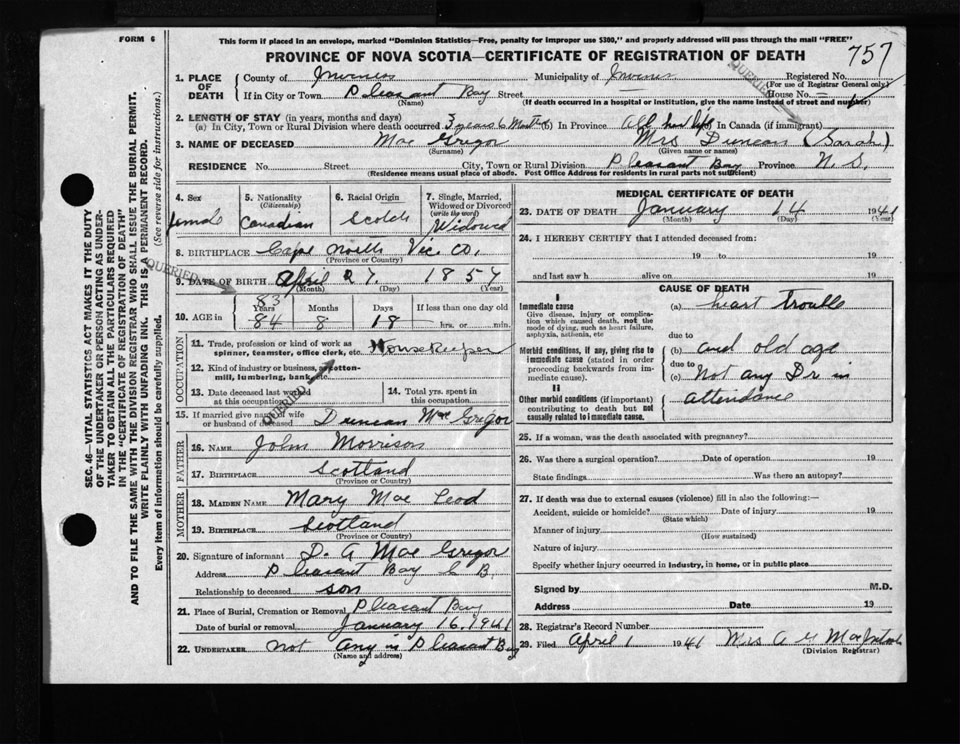 FORM 6
This form if placed in an envelope, marked "Dominion Statistics—Free, penalty for improper use $300," and properly addressed will pass through the mail "FREE"
PROVINCE OF NOVA SCOTIA—CERTIFICATE OF REGISTRATION OF DEATH
757
1. PLACE OF DEATH
County of Inverness Municipality of Inverness Registered No.
(For use of Registrar General only)
If in City or Town Pleasant Bay Street House No. —
(Name) (If death occurred in a hospital or institution, give the name instead of street and number)
QUERIED
2. LENGTH OF STAY (in years, months and days)
(a) In City, Town or Rural Division where death occurred 3 years 6 Months (b) In Province All her life In Canada (if immigrant)
3. NAME OF DECEASED Mac Gregor Mrs Duncan (Sarah)
(Surname) (Given name or names)
RESIDENCE No. Street City, Town or Rural Division Pleasant Bay Province N. S.
(Residence means usual place of abode. Post Office Address for residents in rural parts not sufficient)
4. Sex female
5. Nationality (Citizenship) Canadian
6. Racial Origin Scotch
7. Single, Married, Widowed or Divorced (write the word) Widowed
8. BIRTHPLACE Cape North Vic Co.
(Province or Country)
QUERIED
9. DATE OF BIRTH April 27. 1857
(Month) (Day) (Year)
10. AGE in Years 83 84 Months 8 Days 18 If less than one day old hrs. or min.
OCCUPATION
11. Trade, profession or kind of work as spinner, teamster, office clerk, etc. Housekeeper
12. Kind of industry or business, as cotton-mill, lumbering, bank, etc.
QUERIED
13. Date deceased last worked at this occupation
14. Total yrs. spent in this occupation
15. If married give name of wife or husband of deceased Duncan Mac Gregor
FATHER
16. Name John Morrison
17. Birthplace Scotland
(Province or Country)
MOTHER
18. Maiden Name Mary Mac Leod
19. Birthplace Scotland
(Province or Country)
20. Signature of informant D. A Mac Gregor
Address Pleasant Bay C B.
Relationship to deceased son
21. Place of Burial, Cremation or Removal Pleasant Bay
Date of burial or removal January 16, 1941
22. Undertaker not Any in Pleasant Bay
(Name and address)
MEDICAL CERTIFICATE OF DEATH
23. DATE OF DEATH January 14 1941
(Month) (Day) (Year)
24. I HEREBY CERTIFY that I attended deceased from:
19 to 19
and last saw h alive on 19
CAUSE OF DEATH
I
Immediate cause
Give disease, injury or complication which caused death, not the mode of dying, such as heart failure, asphyxia, asthenia, etc
(a) heart trouble
due to
Morbid conditions, if any, giving rise to immediate cause (stated in order proceeding backwards from immediate cause).
(b) and old age
due to
(c) Not any Dr in
attendance
II
Other morbid conditions (if important) contributing to death but not causally related to immediate cause.
25. If a woman, was the death associated with pregnancy?
26. Was there a surgical operation? Date of operation 19
State findings Was there an autopsy?
27. If death was due to external causes (violence) fill in also the following:—
Accident, suicide or homicide? Date of injury 19
(State which)
Manner of injury
(How sustained)
Nature of injury
Specify whether injury occurred in industry, in home, or in public place
Signed by M.D.
Address Date 19
28. Registrar's Record Number
29. Filed April 1 1941 Mrs A
(Division Registrar)
SEC. 46—VITAL STATISTICS ACT MAKES IT THE DUTY
OF THE UNDERTAKER OR PERSON ACTING AS UNDER-
TAKER TO OBTAIN ALL THE PARTICULARS REQUIRED
IN THE "CERTIFICATE OF REGISTRATION OF DEATH"
AND TO FILE THE SAME WITH THE DIVISION REGISTRAR WHO SHALL ISSUE THE BURIAL PERMIT.
WRITE PLAINLY WITH UNFADING INK. THIS IS A PERMANENT RECORD.
Every item of information should be carefully supplied. (See reverse side for instructions.)